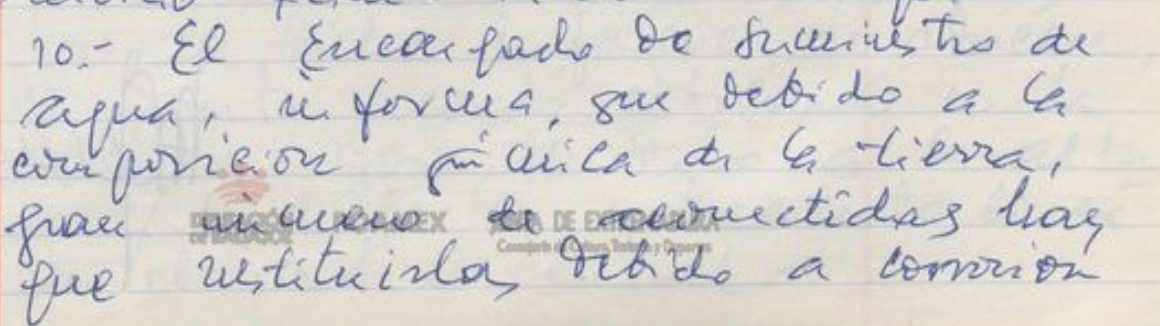 10.- El Encargado de suministro de
agua, informa, que debido a la
composición química de la tierra,
gran número de acometidas hay
que restituirlas debido a corrosión